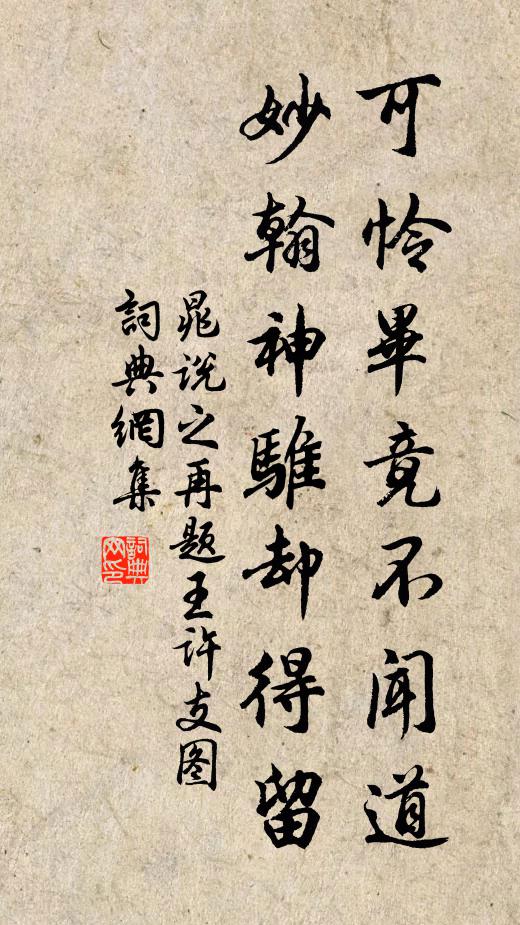 可怜毕竟不闻道
妙翰神骓却得留
晁说之再题王许支图
词典網集
詞典網印